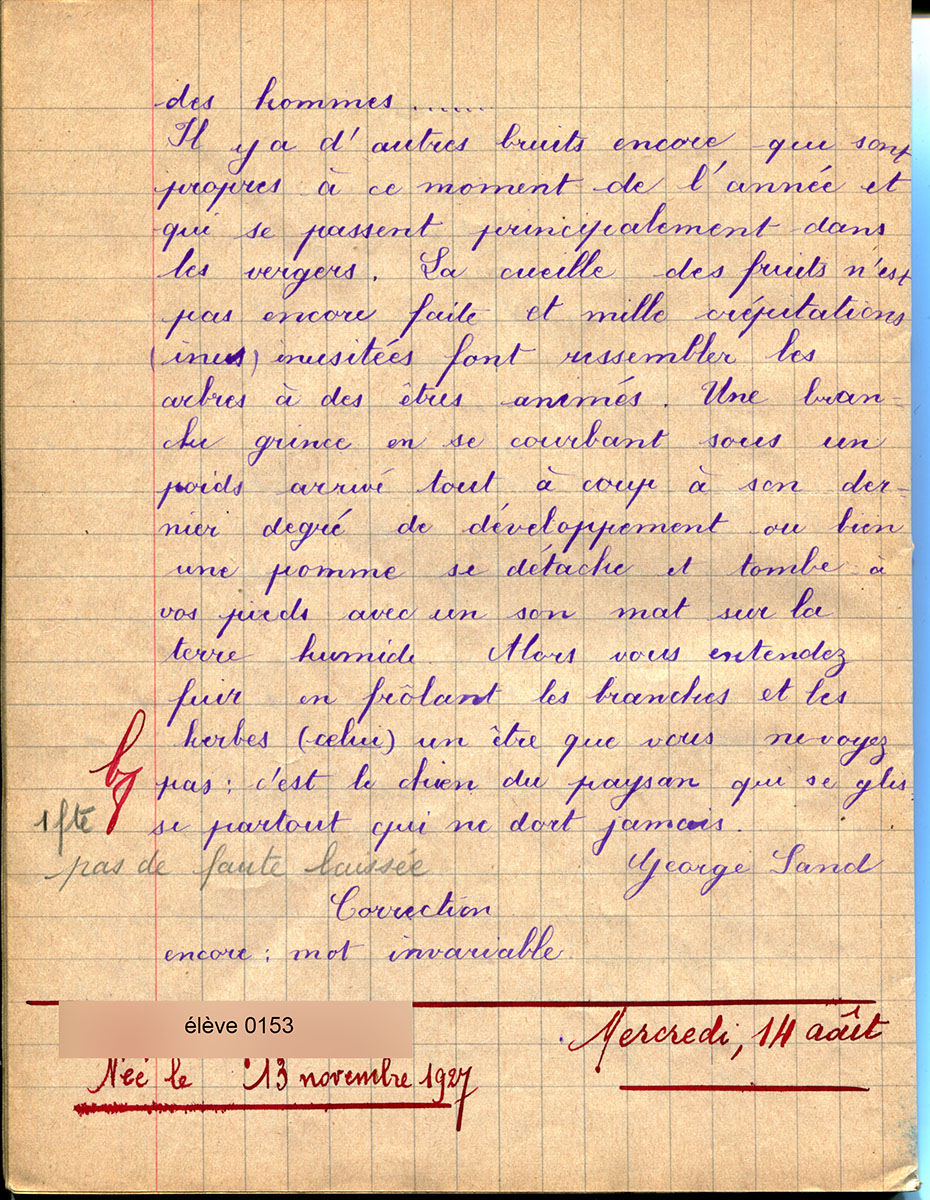 des hommes ......
Il y a d'autres bruits encore qui sont
propres à ce moment de l'année et
qui se passent principalement dans
les vergers. La cueille des fruits n'est
pas encore faite et mille crépitations
(inus) inusitées font ressembler les
arbres à des êtres animés. Une bran-
che grince en se courbant sous un
poids arrivé tout à coup à son der-
nier degré de développement ou bien
une pomme se détache et tombe à
vos pieds avec un son mat sur la
terre humide. Alors vous entendez
fuir en frôlant les branches et les
herbes (celui) un être que vous ne voyez
pas : c'est le chien du paysan qui se glis-
se partout qui ne dort jamais.
1 fte
pas de faute laissée
George Sand
Correction
encore : mot invariable
élève 0153
Mercredi, 14 août
Née le 13 novembre 1927